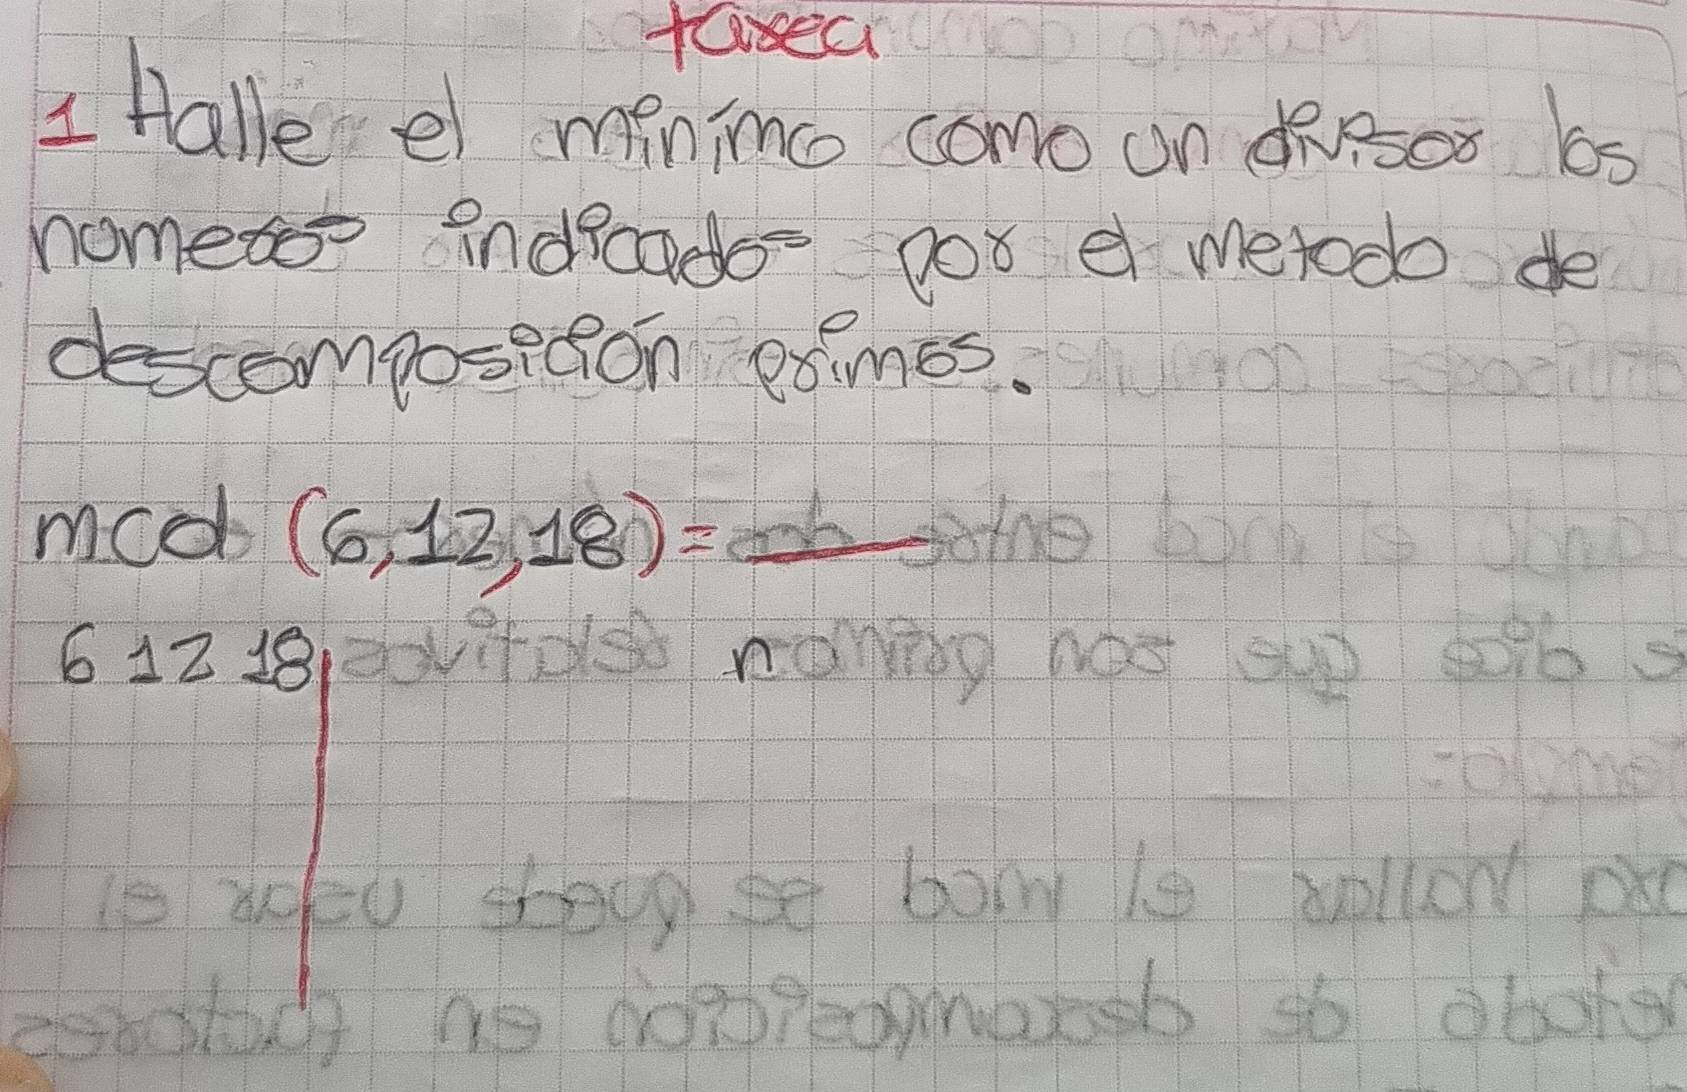 tarea
1 Halle el minimo como un divisor los
numeros indicados por el metodo de
descomposición primos.
mcd (6,12,18)=
6 12 18